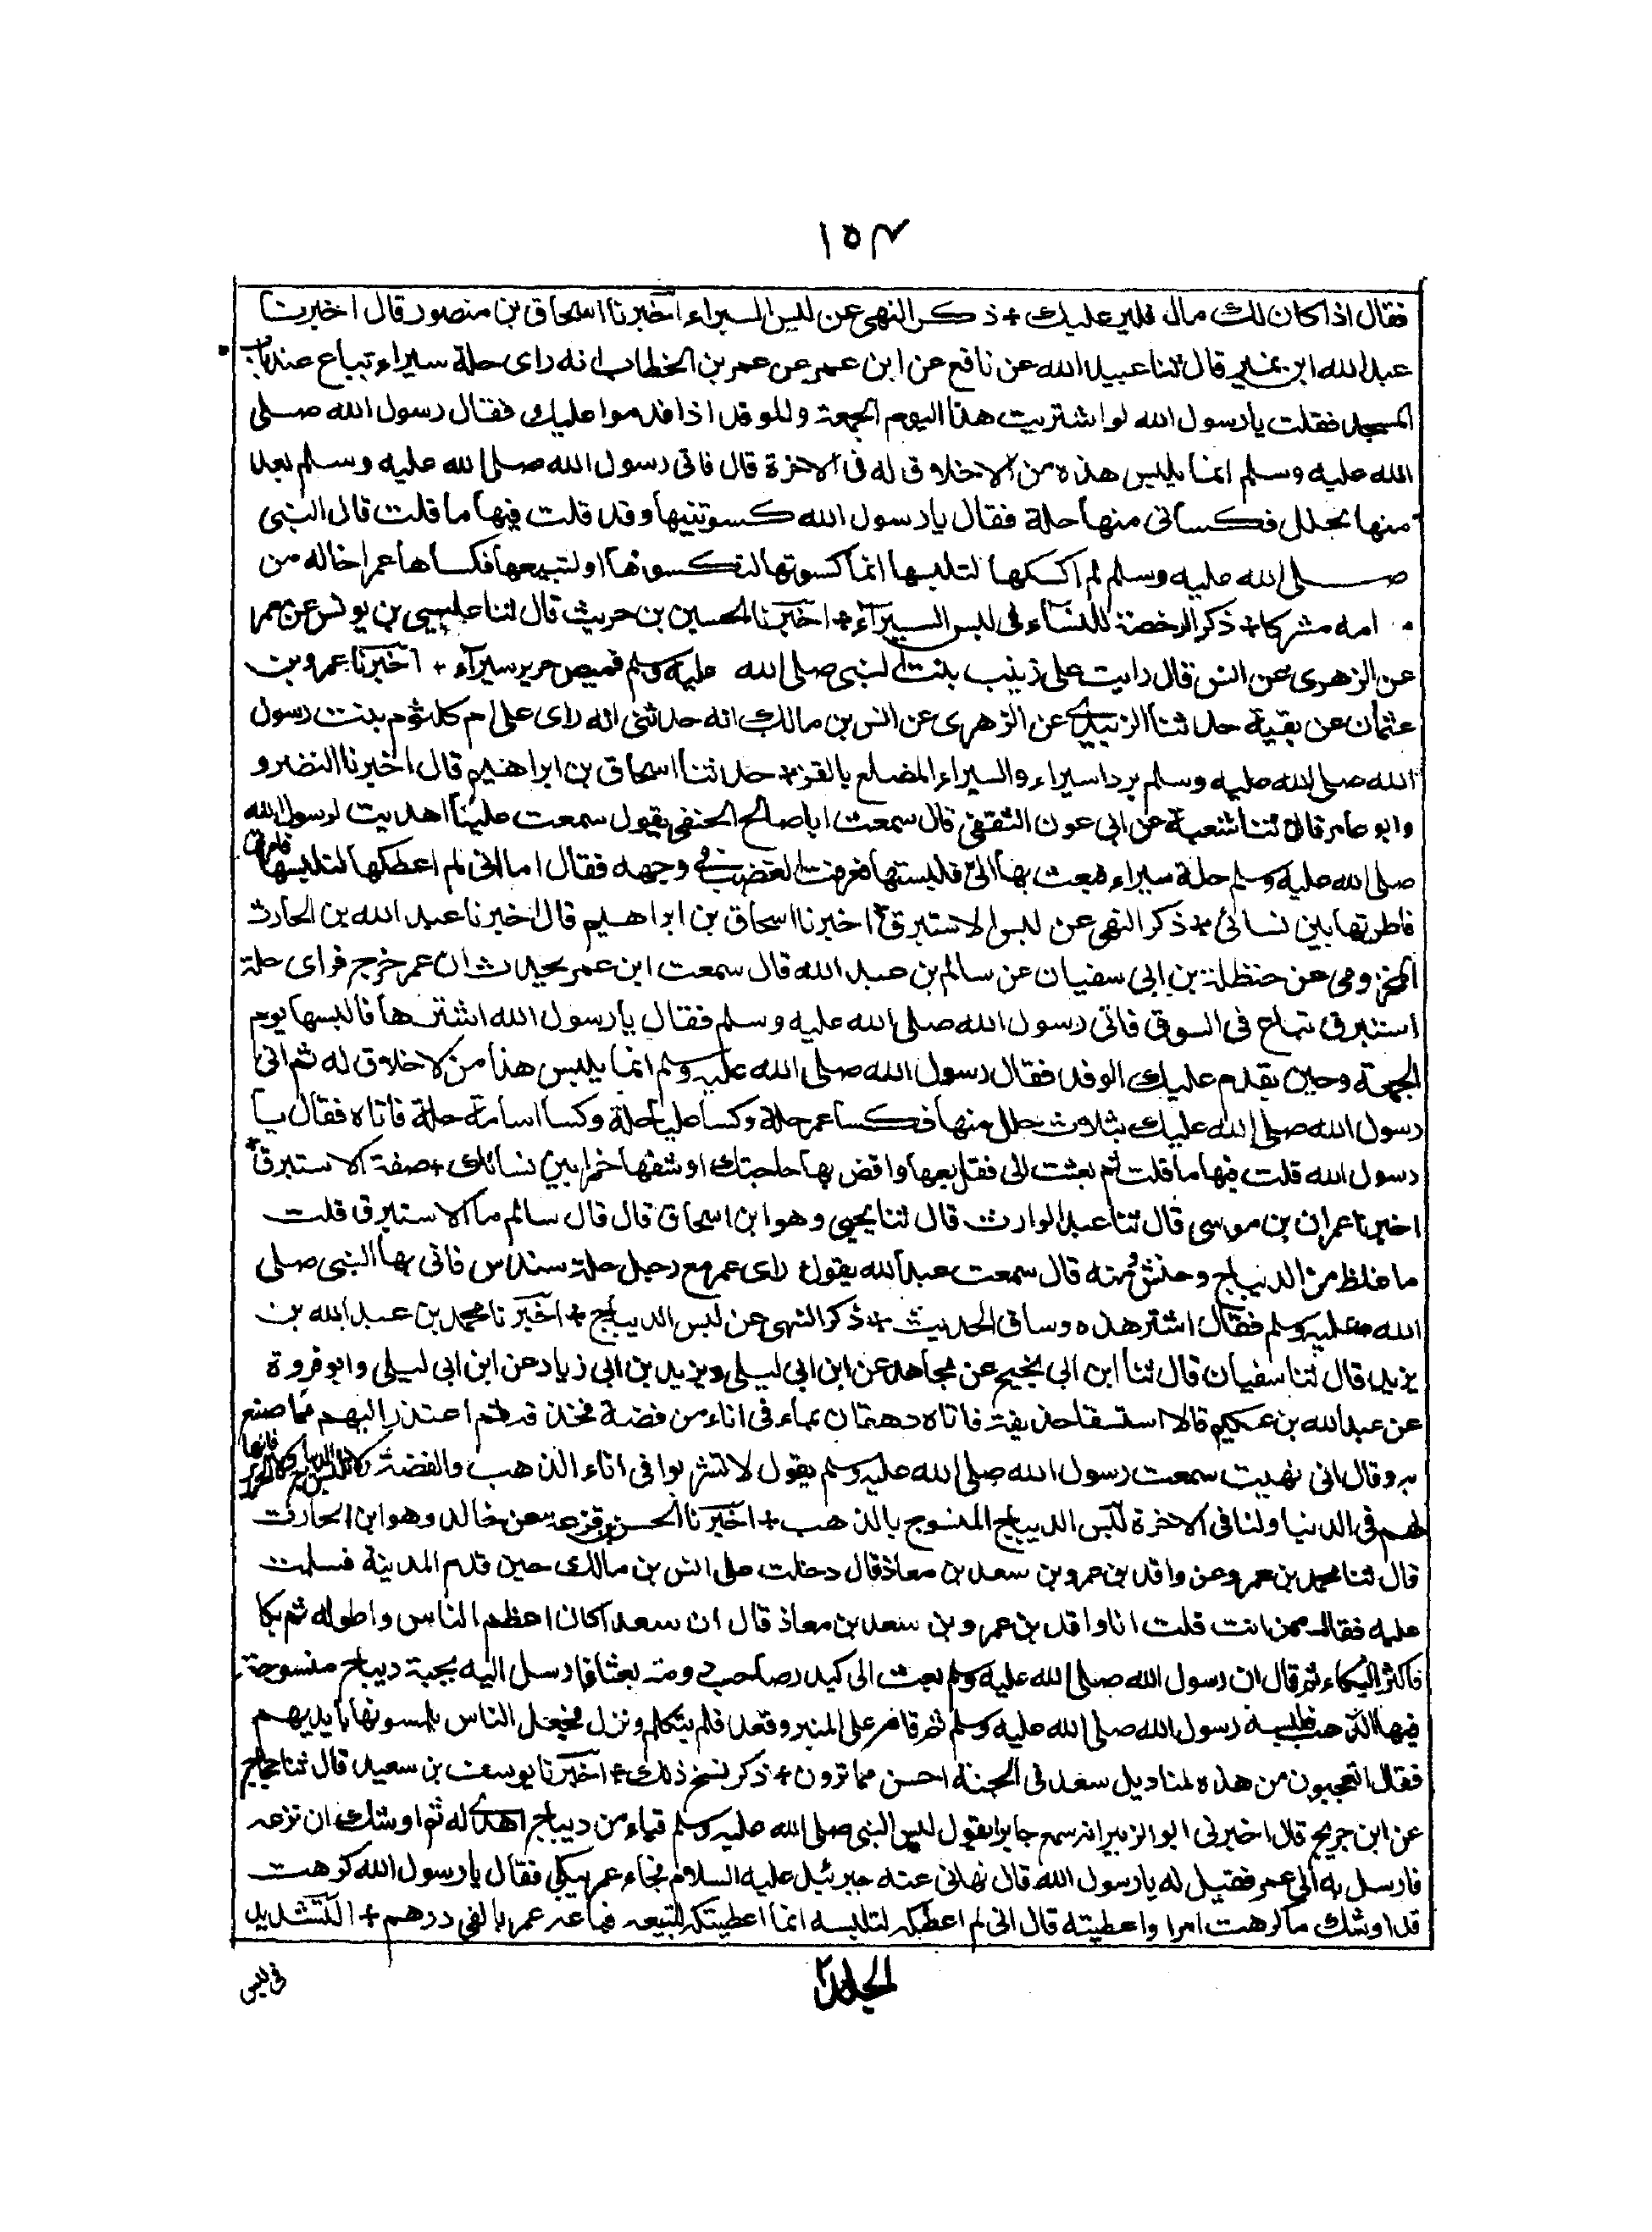 ١٥٣
فقال اذا كان لك مال فلير عليك + ذكر النهى عن لبس السيراء اخبرنا اسحاق بن منصور قال اخبرنا
عبد الله ابن نمير قال ثنا عبيد الله عن نافع عن ابن عمر عن عمر بن الخطاب انه راى حلة سيراء تباع عند باب
المسجد فقلت يا رسول الله لو اشتريت هذا اليوم الجمعة وللوفد اذا قدموا عليك فقال رسول الله صلى
الله عليه وسلم انما يلبس هذه من لاخلاق له فى الاخرة قال فاتى رسول الله صلى الله عليه وسلم بعد
منها بحلل فكسانى منها حلة فقال يا رسول الله كسوتنيها وقد قلت فيها ما قلت قال النبى
صلى الله عليه وسلم لم اكسكها لتلبسها انما كسوتها لتكسوها او لتبيعها فكساها عمر اخا له من
امه مشركا + ذكر الرخصة للنساء فى لبس السيراء + اخبرنا الحسين بن حريث قال ثنا عيسى بن يونس عن معمر
عن الزهرى عن انس قال رايت على زينب بنت النبى صلى الله عليه وسلم قميص حرير سيراء + اخبرنا عمرو بن
عثمان عن بقية حدثنا الزبيدى عن الزهرى عن انس بن مالك انه حدثنى انه راى على ام كلثوم بنت رسول
الله صلى الله عليه وسلم برد اسيراء والسيراء المضلع بالقز + حدثنا اسحاق بن ابراهيم قال اخبرنا النضرو
وابو عامر قالا ثنا شعبة عن ابى عون الثقفى قال سمعت ابا صالح الحنفى يقول سمعت عليا اهديت لرسول الله
صلى الله عليه وسلم حلة سيراء فبعث بها الى فلبستها فعرفت الغضب فى وجهه فقال اما انى لم اعطكها لتلبسها فامرنى
فاطرتها بين نسائى + ذكر النهى عن لبس الاستبرق اخبرنا اسحاق بن ابراهيم قال اخبرنا عبد الله بن الحارث
المخزومى عن حنظلة بن ابى سفيان عن سالم بن عبد الله قال سمعت ابن عمر يحدث ان عمر خرج فراى حلة
استبرق تباع فى السوق فاتى رسول الله صلى الله عليه وسلم فقال يا رسول الله اشترها فالبسها يوم
الجمعة وحين يقدم عليك الوفد فقال رسول الله صلى الله عليه وسلم انما يلبس هذا من لاخلاق له ثم اتى
رسول الله صلى الله عليك بثلاث حلل منها فكسا عمر حلة وكسا عليا حلة وكسا اسامة حلة فاتاه فقال يا
رسول الله قلت فيها ما قلت ثم بعثت الى فقال بعها واقض بها حاجتك او شققها خمرا بين نسائك + صفة الاستبرق
اخبرنا عمران بن موسى قال ثنا عبد الوارث قال ثنا يحيى وهو ابن اسحاق قال قال سالم ما الاستبرق قلت
ما غلظ من الديباج وخشن منه قال سمعت عبد الله يقول راى عمر مع رجل حلة سندس فاتى بها النبى صلى
الله عليه وسلم فقال اشتر هذه وساق الحديث + ذكر النهى عن لبس الديباج + اخبرنا محمد بن عبد الله بن
يزيد قال ثنا سفيان قال ثنا ابن ابى نجيح عن مجاهد عن ابن ابى ليلى ويزيد بن ابى زياد عن ابن ابى ليلى وابو فروة
عن عبد الله بن عكيم قالا استسقا حذيفة فاتاه دهقان بماء فى اناء من فضة فحذفه ثم اعتذر اليهم مما صنع
به وقال انى نهيت سمعت رسول الله صلى الله عليه وسلم يقول لا تشربوا فى اناء الذهب والفضة ولا تلبسوا الديباج ولا الحرير فانها
لهم فى الدنيا ولنا فى الاخرة لبس الديباج المنسوج بالذهب + اخبرنا الحسن بن قزعة عن خالد وهو ابن الحارث
قال ثنا محمد بن عمرو عن واقد بن عمرو بن سعد بن معاذ قال دخلت على انس بن مالك حين قدم المدينة فسلمت
عليه فقال ممن انت قلت انا واقد بن عمرو بن سعد بن معاذ قال ان سعدا كان اعظم الناس واطوله ثم بكا
فاكثر البكاء ثم قال ان رسول الله صلى الله عليه وسلم بعث الى اكيدر صاحب دومة بعثا فارسل اليه بجبة ديباج منسوجة
فيها الذهب فلبسه رسول الله صلى الله عليه وسلم ثم قام على المنبر وقعد فلم يتكلم ونزل فجعل الناس يلمسونها بايديهم
فقال اتعجبون من هذه لمناديل سعد فى الجنة احسن مما ترون + ذكر نسخ ذلك + اخبرنا يوسف بن سعيد قال ثنا حجاج
عن ابن جريج قال اخبرنى ابو الزبير انه سمع جابرا يقول لبس النبى صلى الله عليه وسلم قباء من ديباج اهدى له ثم اوشك ان نزعه
فارسل به الى عمر فقيل له يا رسول الله قال نهانى عنه جبرئيل عليه السلام فجاء عمر يبكى فقال يا رسول الله كرهت
قد اوشك ما كرهت امرا واعطيته قال انى لم اعطكه لتلبسه انما اعطيتكه لتبيعه فباعه عمر بالفى درهم + التشديد
فى لبس
المجلد ٢